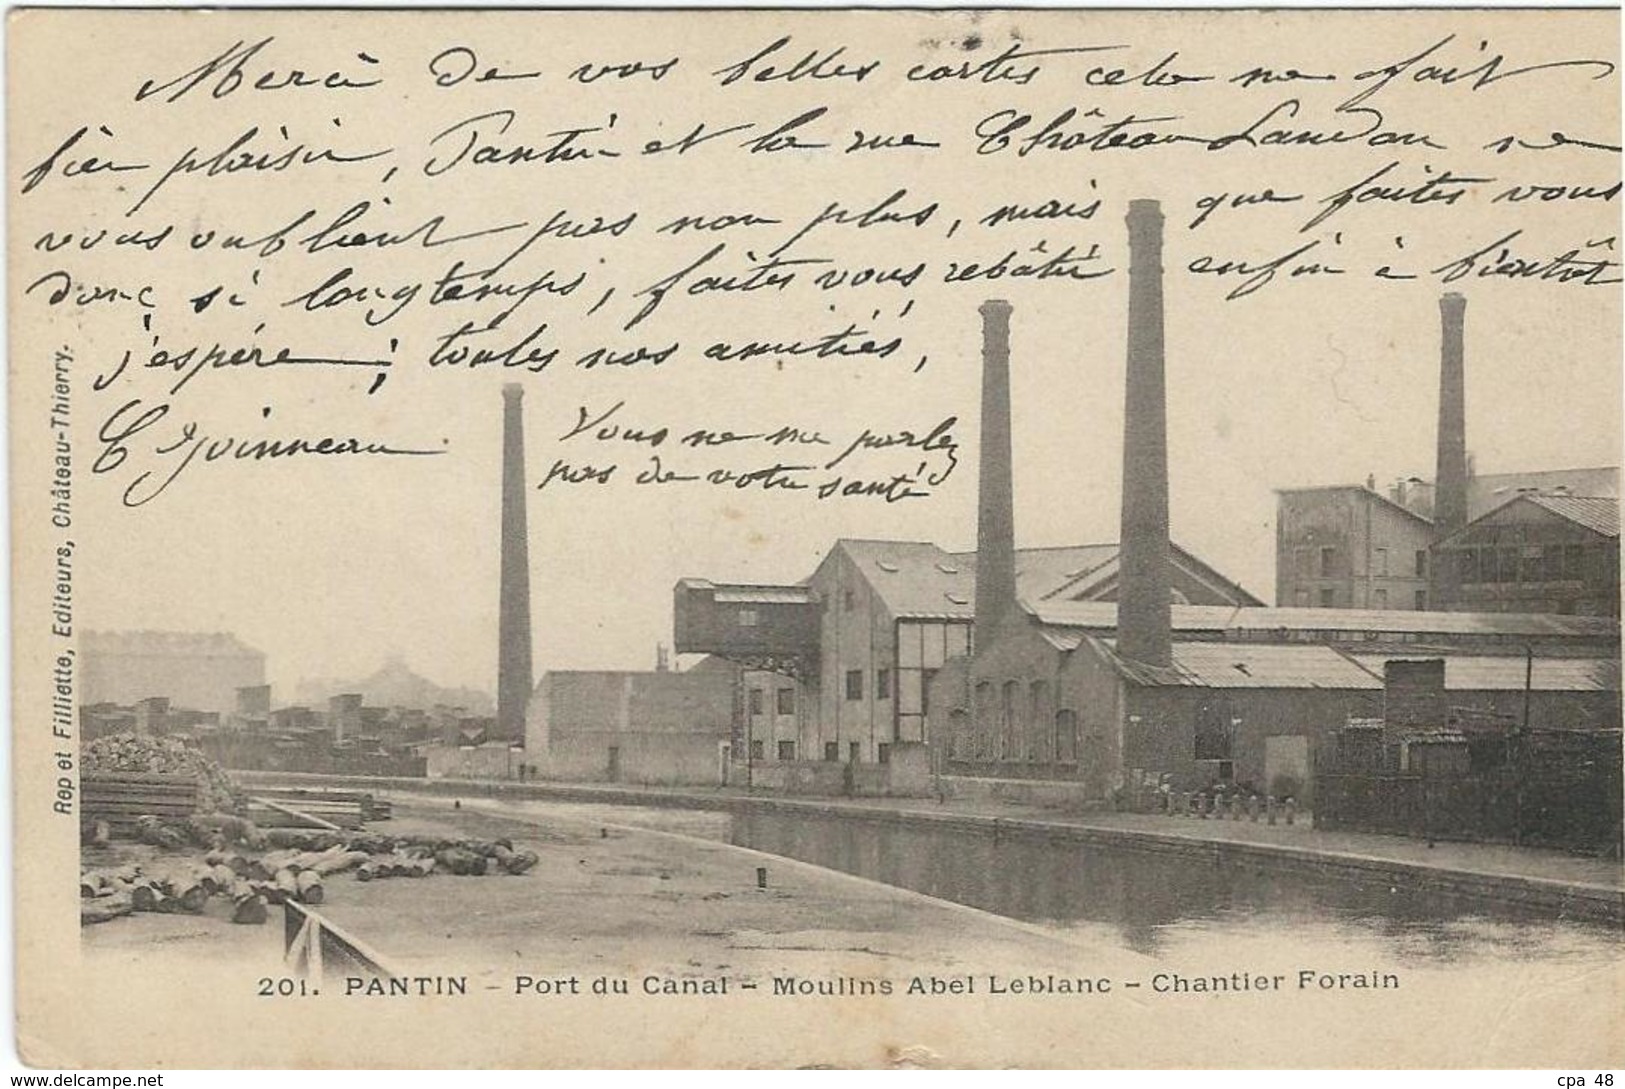 Merci de vos belles cartes cela me fait
bien plaisir, Pantin et la rue Château Landon ne
vous oublient pas non plus, mais que faites vous
donc si longtemps, faites vous rebâtir enfin à bientôt
j'espère; toutes nos amitiés,
Vous ne me parlez
pas de votre santé
Rep et Filliette, Editeurs, Château-Thierry.
201. PANTIN – Port du Canal – Moulins Abel Leblanc – Chantier Forain
www.delcampe.net
cpa 48